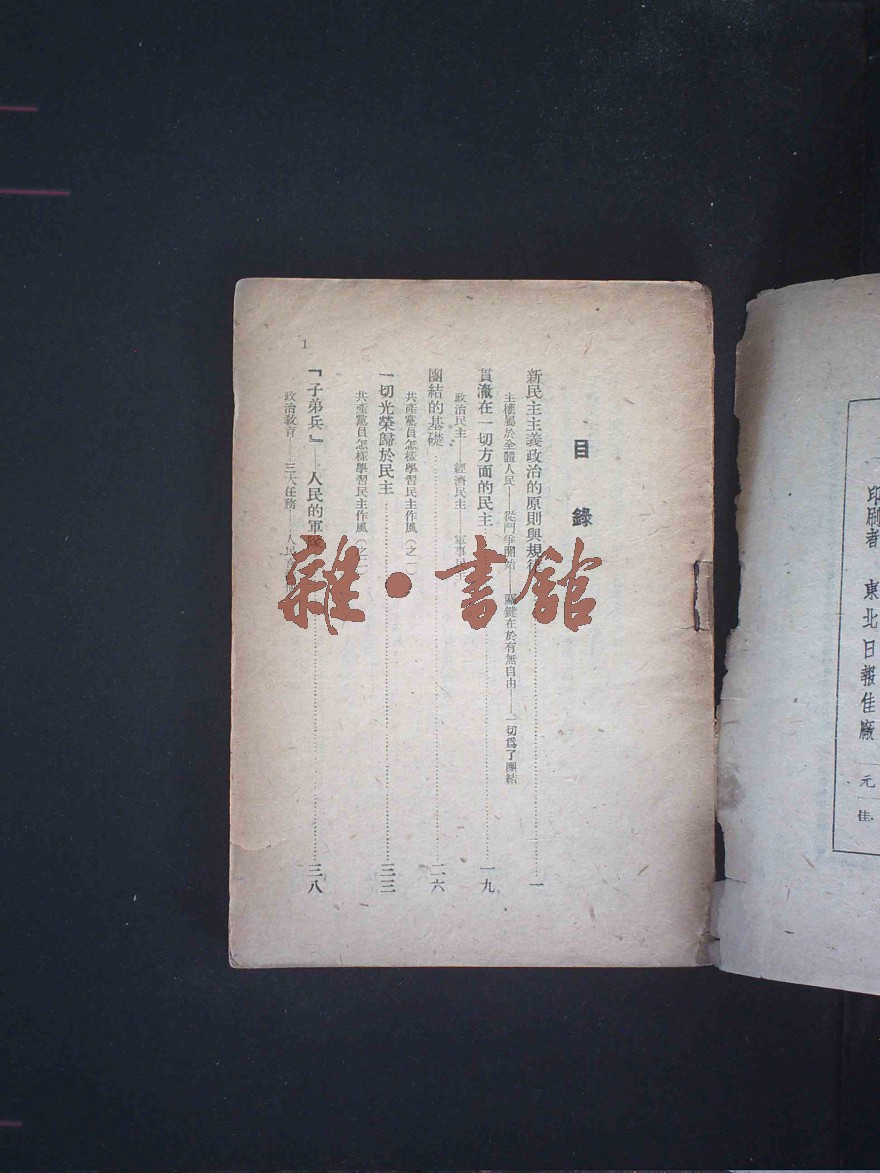 印刷者 東北日報佳廠
元
佳
目錄
新民主主義政治的原則與規律……一
主權屬於全體人民——從鬥爭開始——關鍵在於有無自由——一切爲了團結
貫澈在一切方面的民主……一九
政治民主——經濟民主——軍事民主
團結的基礎……二六
共產黨員怎樣學習民主作風(之一)
一切光榮歸於民主……三三
共產黨員怎樣學習民主作風(之二)
『子弟兵』——人民的軍隊……三八
政治教育——三大任務——人民
1
雜·書館